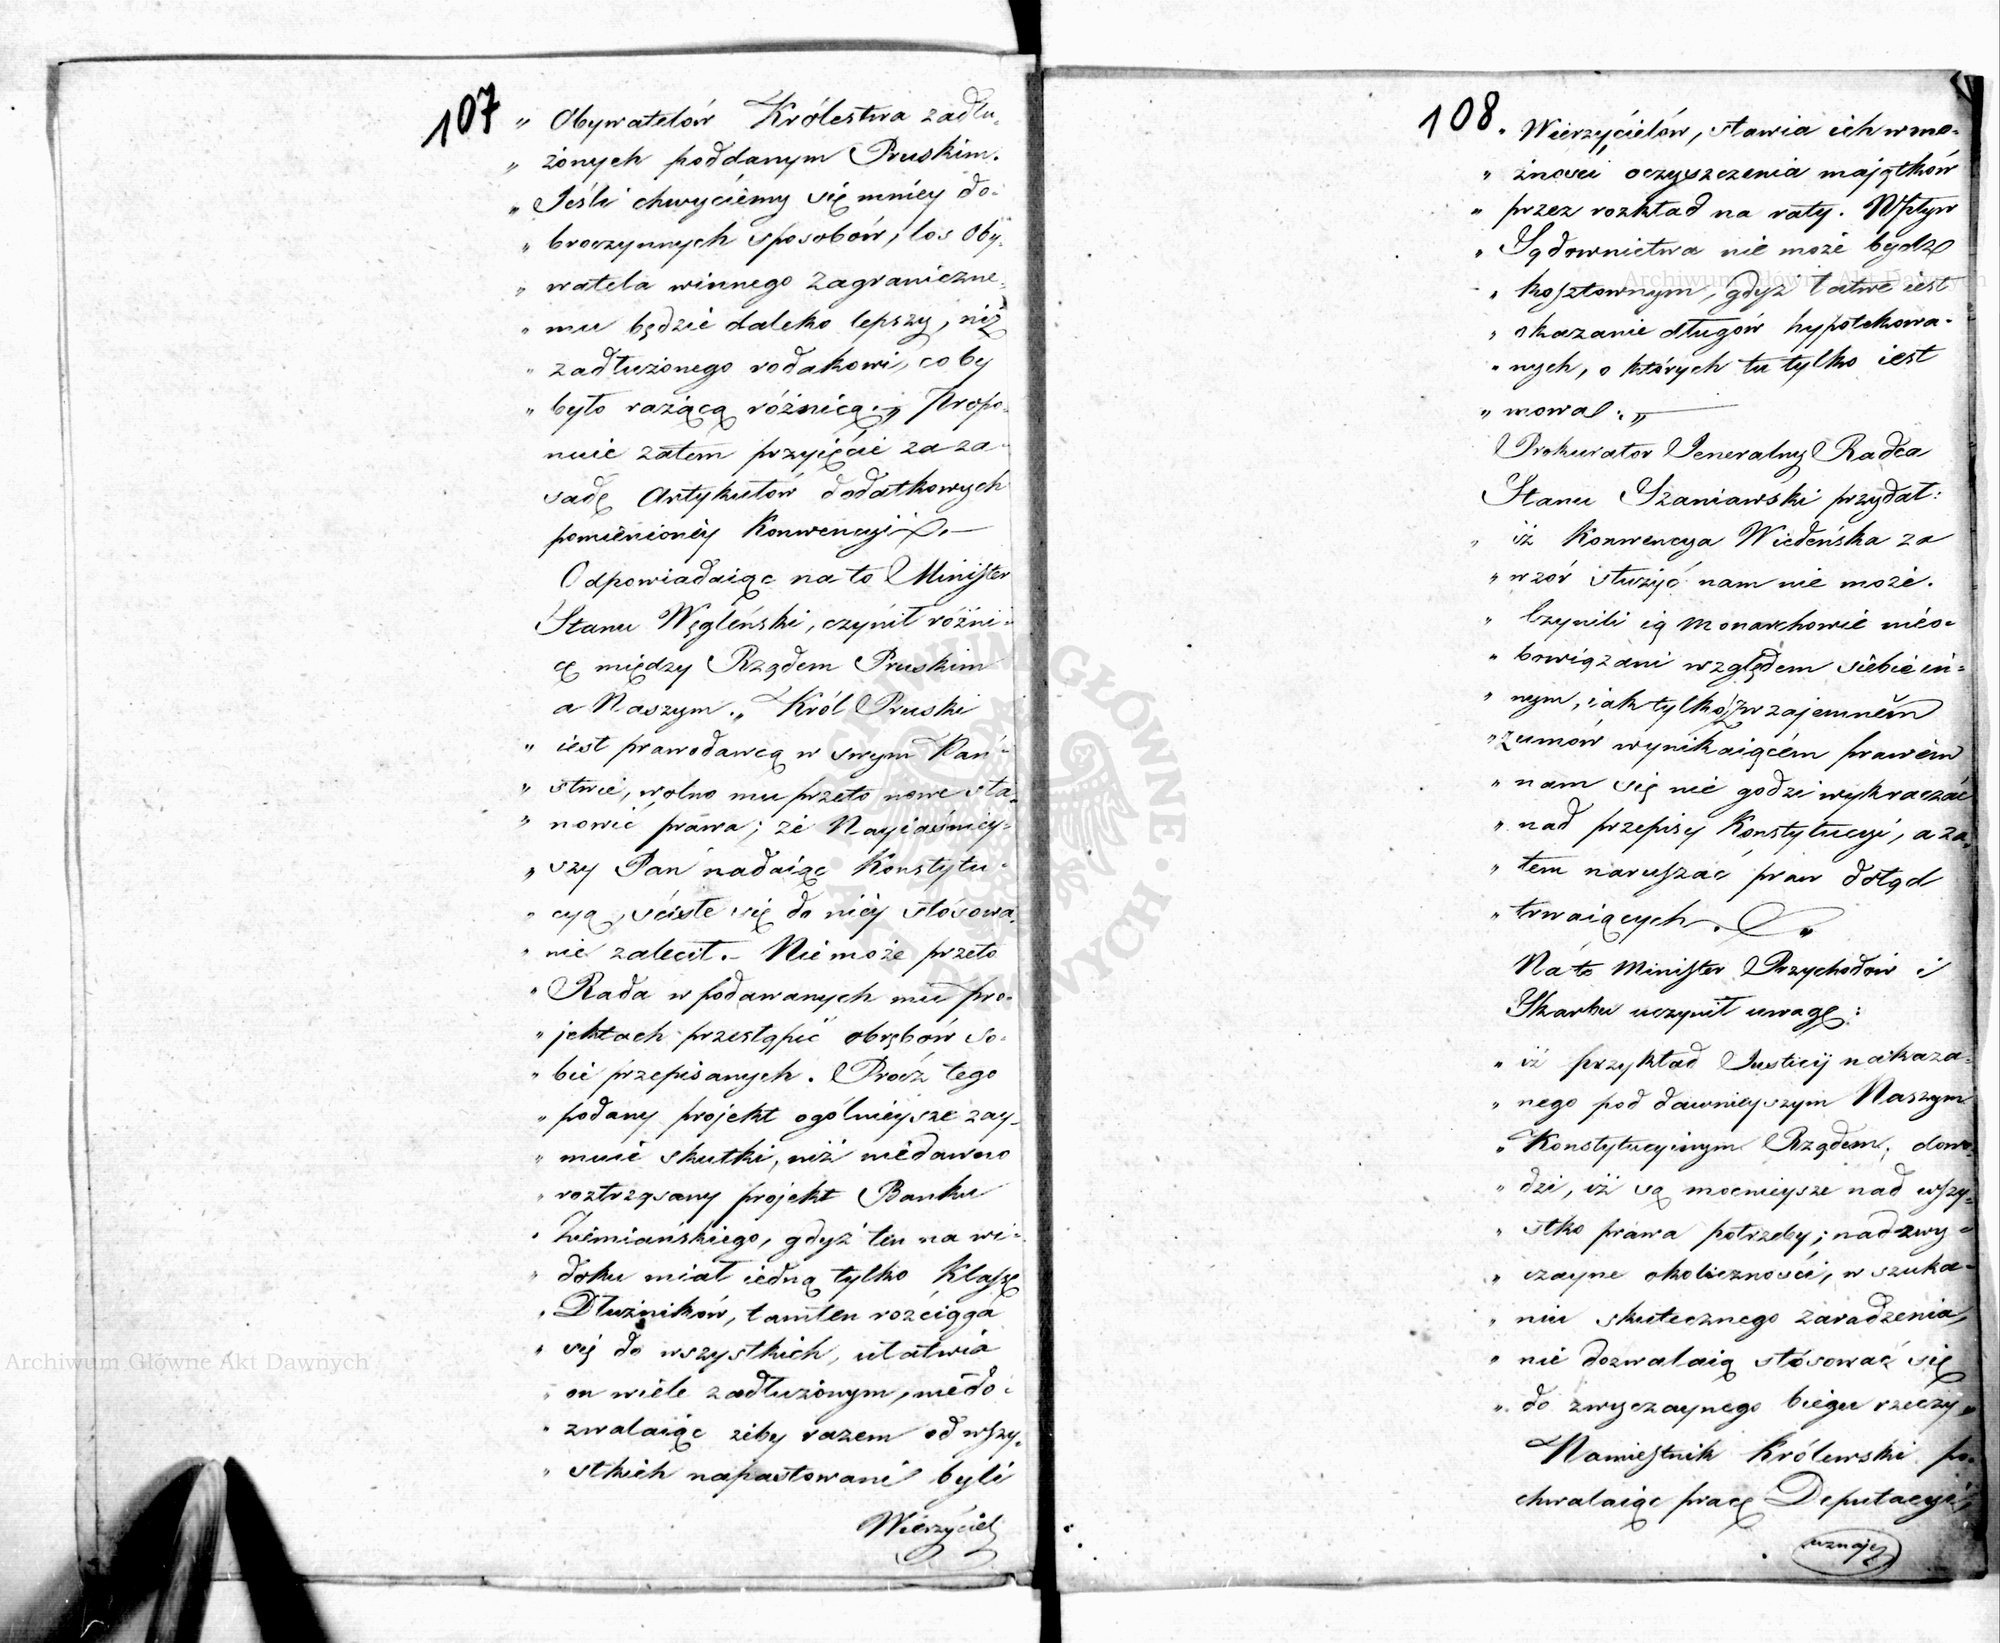 107
„ Obywatelów Królestwa zadłu-
„ żonych poddanym Pruskim.
„ Jeśli chwyciémy się mniéy do-
„ broczynnych sposobów, los Oby-
„ watela winnego Zagraniczne-
„ mu będzie daleko lepszy, niż
„ zadłużonego rodakowi, co by
„ było rażącą różnicą. „ Propo-
nuie zatém przyięcie za za-
sadę Artykułów dodatkowych
pomienionéy Konwencyi. —
Odpowiadaiąc na to Minister
Stanu Węgleński, czynił różni-
cę między Rządem Pruskim
a Naszym. „ Król Pruski
„ iest prawodawcą w swym Pań-
„ stwie, wolno mu przeto nowe sta-
„ nowić prawa; że Nayiaśniey-
„ szy Pan nadaiąc Konstytu-
„ cyą, ściśle się do niéy stósowa-
„ nie zalecił. — Nie może przeto
„ Rada w podawanych mu pro-
„ jektach przestąpić obrębów so-
„ bie przepisanych. Prócz tego
„ podany projekt ogólnieysze zay-
„ muie skutki, niż niedawno
„ roztrząsany projekt Banku
„ Ziemiańskiego, gdyż ten na wi-
„ doku miał iedną tylko Klassę
„ Dłużników, tamten rozciąga
„ się do wszystkich, ułatwia
„ on wiele zadłużonym, niedo-
„ zwalaiąc żeby razem od wszy-
„ stkich napastowani byli
Wierzyciel
108
„ Wierzycielów, stawia ich w mo-
„ żności oczyszczenia majątków
„ przez rozkład na raty. Wpływ
„ Sądownictwa nie może bydź
„ kosztownym, gdyż łatwe iest
„ okazanie długów hypotekowa-
„ nych, o których tu tylko iest
„ mowa. „ —
Prokurator Jeneralny Radca
Stanu Szaniawski przydał:
„ iż Konwencya Wiedeńska za
„ wzór służyć nam nie może.
„ Czynili ią Monarchowie nieo-
„ bowiązani względem siebie in-
„ nym, iak tylko z wzajemném
„ z umów wynikaiącém prawém
„ nam się nie godzi wykraczać
„ nad przepisy Konstytucyi, a za-
„ tem naruszać praw dotąd
„ trwaiących. „
Na to Minister Przychodów i
Skarbu uczynił uwagę:
„ iż przykład Justicij nakaza-
„ nego pod dawnieyszym Naszym
„ Konstytucyinym Rządem, dowo-
„ dzi, iż są mocnieysze nad wszy-
„ stko prawa potrzeby; nadzwy-
„ czayne okoliczności, w szuka-
„ niu skutecznego zaradzenia,
„ nie dozwalaią stósować się
„ do zwyczaynego biegu rzeczy „
Namiestnik Królewski po-
chwalaiąc pracę Deputacyi,
uznaje
Archiwum Główne Akt Dawnych
Archiwum Główne Akt Dawnych
ARCHIWUM GŁÓWNE AKT DAWNYCH